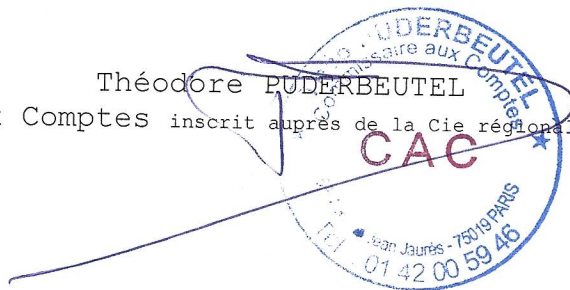 Théodore PUDERBEUTEL
Comptes inscrit auprès de la Cie régional
PUDERBEUTEL
Commissaire aux Comptes
CAC
Jean Jaurès - 75019 PARIS
Tél 01 42 00 59 46